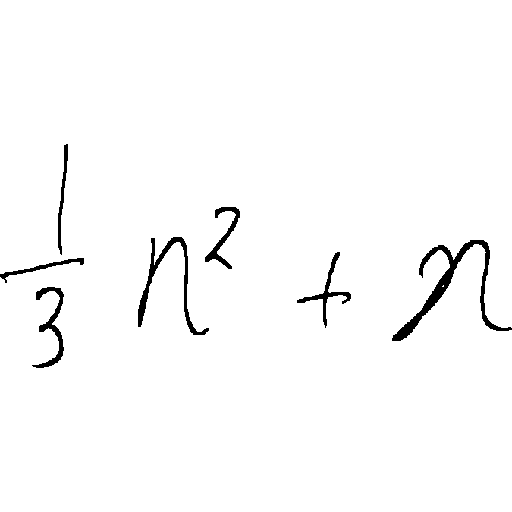 \frac{1}{3} n^2 + n